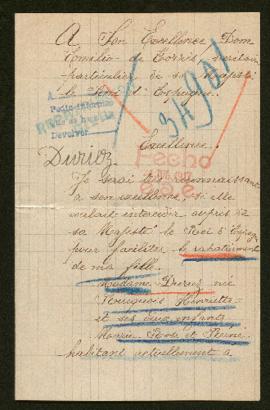 A Son Excellence Dom
Emilio de Torrès secrétaire
particulier de sa Majesté
le d'Espagne.
Devolver
Excellence.
Durioz
Fecho
Je serai très reconnaissant
à son excellence, si elle
voulait intercéder auprès de
sa Majesté le Roi d'Espagne
pour faciliter le rapatriement
de ma fille.
Madame Durioz née
Bourgeois Henriette
et ses deux enfants
Marie Rose et Pierre
habitant actuellement à